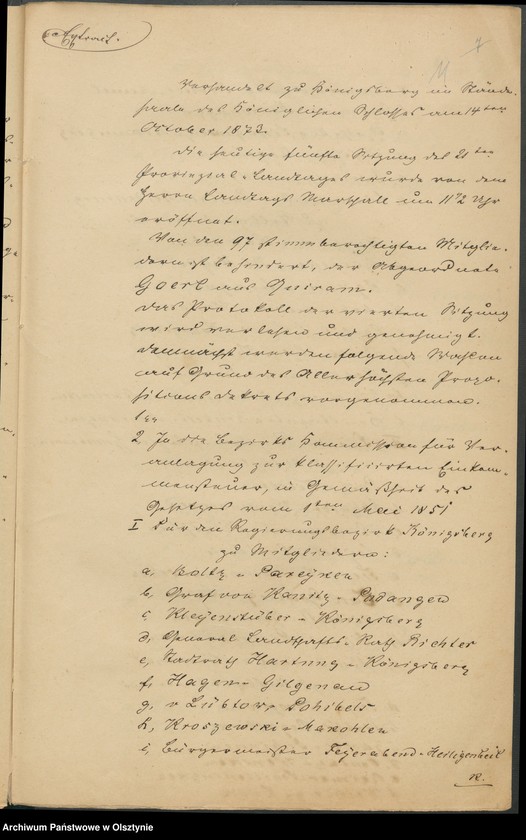 Extract.
7
Verhandelt zu Königsberg im Stände
saale des Königlichen Schlosses am 14ten
October 1873.
Die heutige fünfte Sitzung des 21ten
Provinzial-Landtages wurde von dem
Herrn Landtags Marschall um 11 1/2 Uhr
eröffnet.
Von den 97 stimmberechtigten Mitglie-
dern ist behindert, der Abgeordnete
Goerl aus Quiram.
Das Protokoll der vierten Sitzung
wird verlesen und genehmigt.
Demnächst werden folgende Wahlen
auf Grund des Allerhöchsten Propo-
sitions Dekrets vorgenommen.
1
2 In die Bezirks Kommission für Ver-
anlagung zur klassificirten Einkom-
mensteuer, in Gemäßheit des
Gesetzes vom 1ten Mai 1851
I Für den Regierungsbezirk Königsberg
zu Mitgliedern:
a, Boltz - Pareyken
b, Graf von Kanitz - Podangen
c, Kleyenstüber - Königsberg
d, General Landschafts-Rath Richter
e, Stadtrath Hartung - Königsberg
f, Hagen - Gilgenau
g, v Lübtow Pohibels
h, Kroszewski - Maxohlen
i, Bürgermeister Feyerabend-Heiligenbeil
R.
Archiwum Państwowe w Olsztynie